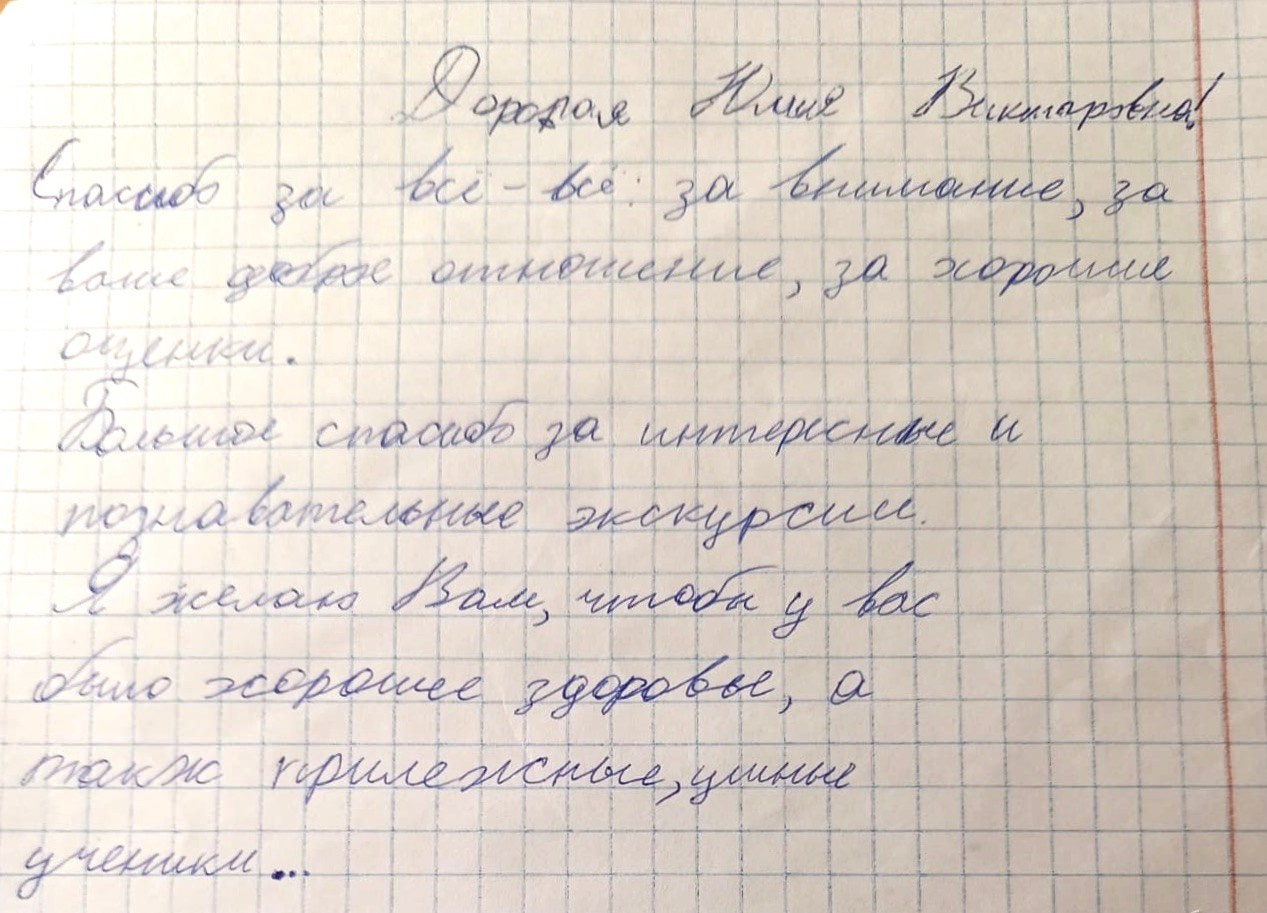 Дорогая Юлия Викторовна!
Спасибо за всё-всё: за внимание, за
ваше доброе отношение, за хорошие
оценки.
Большое спасибо за интересные и
познавательные экскурсии.
Я желаю Вам, чтобы у вас
было хорошее здоровье, а
также прилежные, умные
ученики...